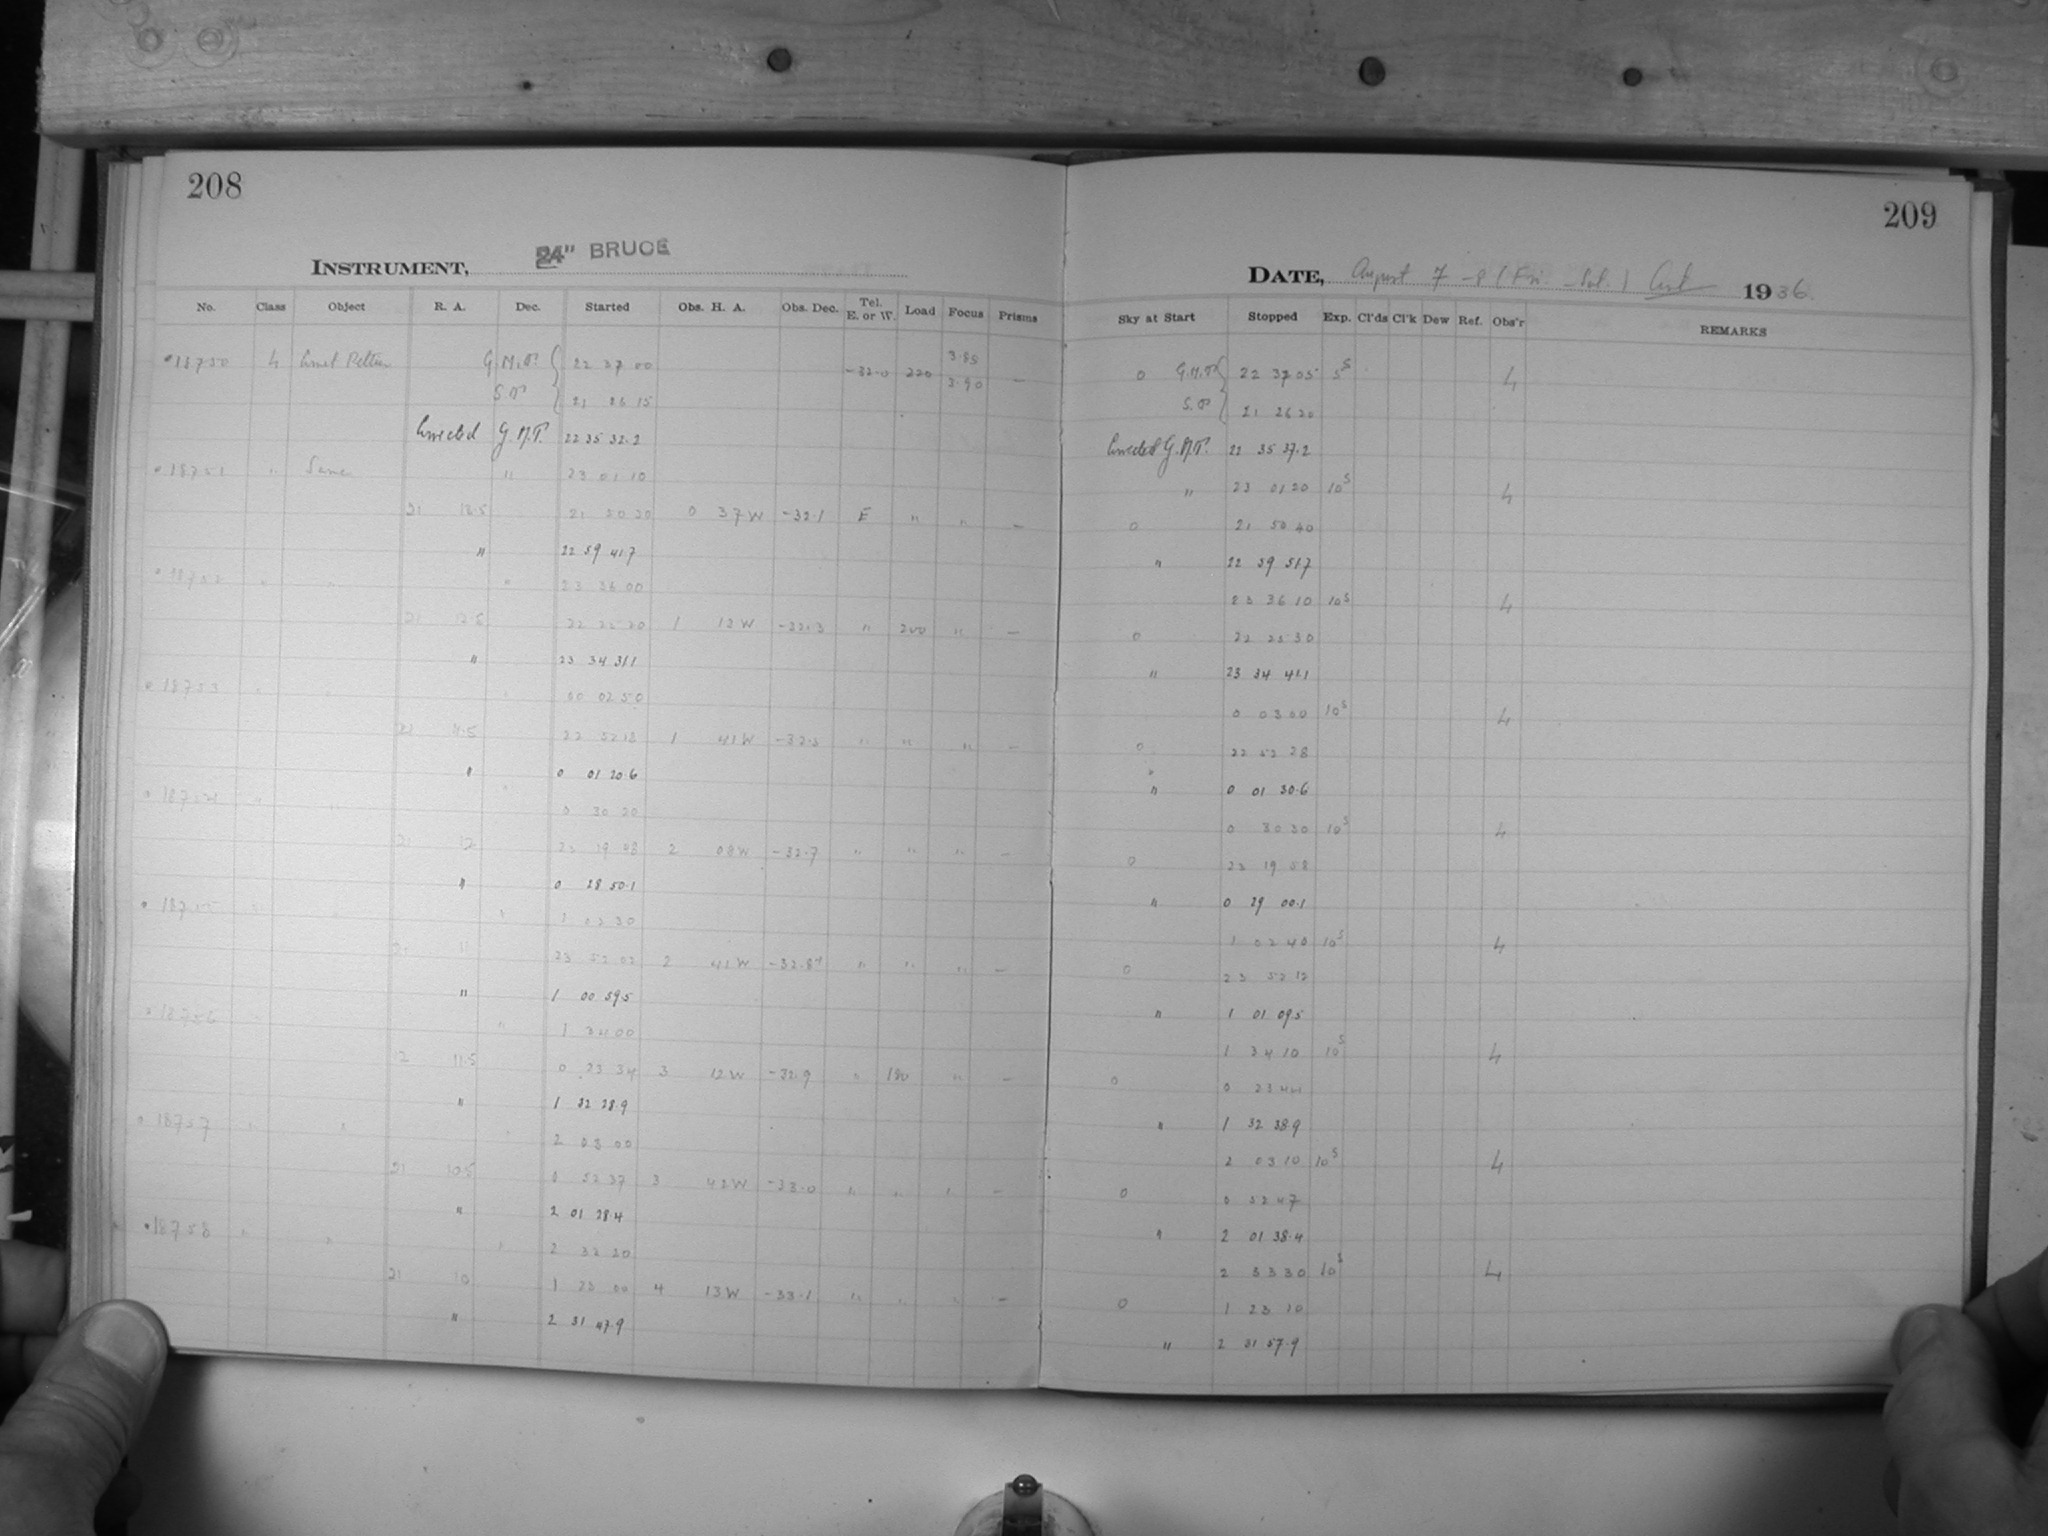 208
INSTRUMENT, 24" BRUCE
No. Class Object R. A. Dec. Started Obs. H. A. Obs. Dec. Tel. E. or W. Load Focus Prisms
18750 4 Comet Peltier G.M.T. 22 37 00 3.85
S.T. 21 26 15 -32.0 220 3.90 —
Corrected G.M.T. 22 35 32.2
18751 " Same " 23 01 10
21 12.5 21 50 30 0 37 W -32.1 E " " —
" 22 59 41.7
18752 " " " 23 36 00
21 12.5 22 25 20 1 12 W -32.3 " 200 " —
" 23 34 31.1
18753 " " " 00 02 50
21 11.5 22 52 18 1 41 W " " " —
" 0 01 20.6
18754 " " " 0 30 20
21 12 23 19 48 2 08 W -32.7 " " " —
" 0 28 50.1
18755 " " " 1 02 30
21 11 23 52 02 2 41 W " " " —
" 1 00 59.5
18756 " 1 34 00
11.5 0 23 34 3 12 W -32.9 " 180 " —
" 1 32 28.9
18757 " " " 2 03 00
21 10.5 0 52 37 3 42 W -33.0 " " " —
" 2 01 28.4
18758 " " " 2 33 20
21 10 1 23 00 4 13 W -33.1 " " " —
" 2 31 47.9
209
DATE, August 7 - 8 (Fri. - Sat.) 1936
Sky at Start Stopped Exp. Cl'ds Cl'k Dew Ref. Obs'r REMARKS
0 G.M.T. 22 37 05 5s 4
S.T. 21 26 20
Corrected G.M.T. 22 35 37.2
" 23 01 20 10s 4
0 21 50 40
" 22 59 51.7
23 36 10 10s 4
0 22 25 30
" 23 34 41.1
0 03 00 10s 4
0 22 52 28
" 0 01 30.6
0 30 30 10s 4
0 23 19 58
" 0 29 00.1
1 02 40 10s 4
0 23 52 12
" 1 01 09.5
1 34 10 10s 4
0 0 23 44
" 1 32 38.9
2 03 10 10s 4
0 0 52 47
" 2 01 38.4
2 33 30 10s 4
0 1 23 10
" 2 31 57.9